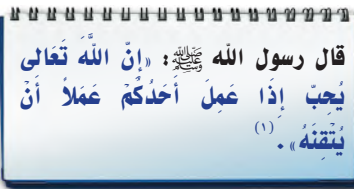 قال رسول الله ﷺ: «إِنَّ اللَّهَ تَعَالى
يُحِبّ إِذَا عَمِلَ أَحَدُكُمْ عَمَلاً أَنْ
يُتْقِنَهُ»(١).